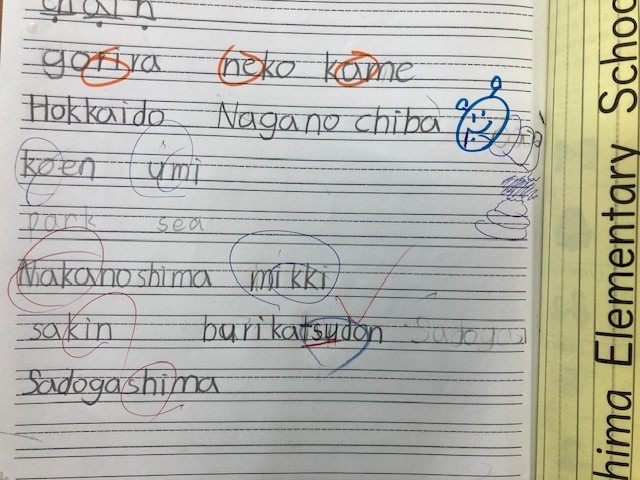 chain
gorira neko kame
Hokkaido Nagano chiba
koen umi
park sea
Nakanoshima mikki
sakin burikatsudon Sadogas
Sadogashima
hima Elementary Schoo